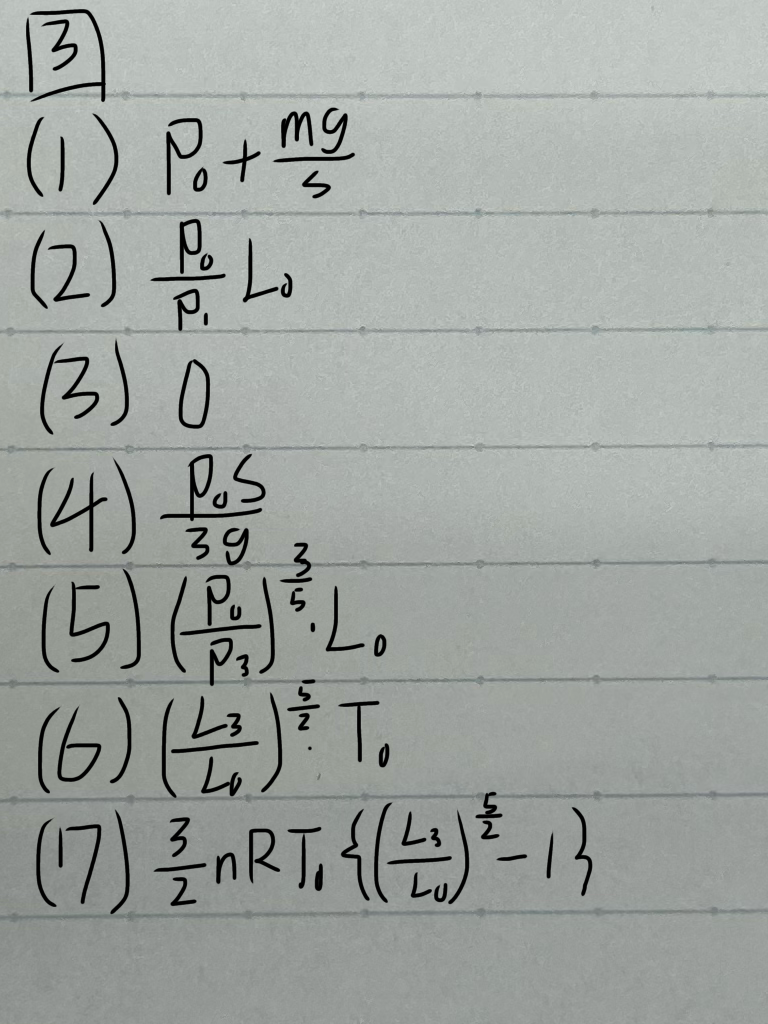 3
(1) P₀ + mg/s
(2) P₀/P₁ L₀
(3) 0
(4) P₀S/3g
(5) (P₀/P₃)^(3/5) · L₀
(6) (L₃/L₀)^(5/2) · T₀
(7) 3/2 nRT₀ {(L₃/L₀)^(5/2) − 1}